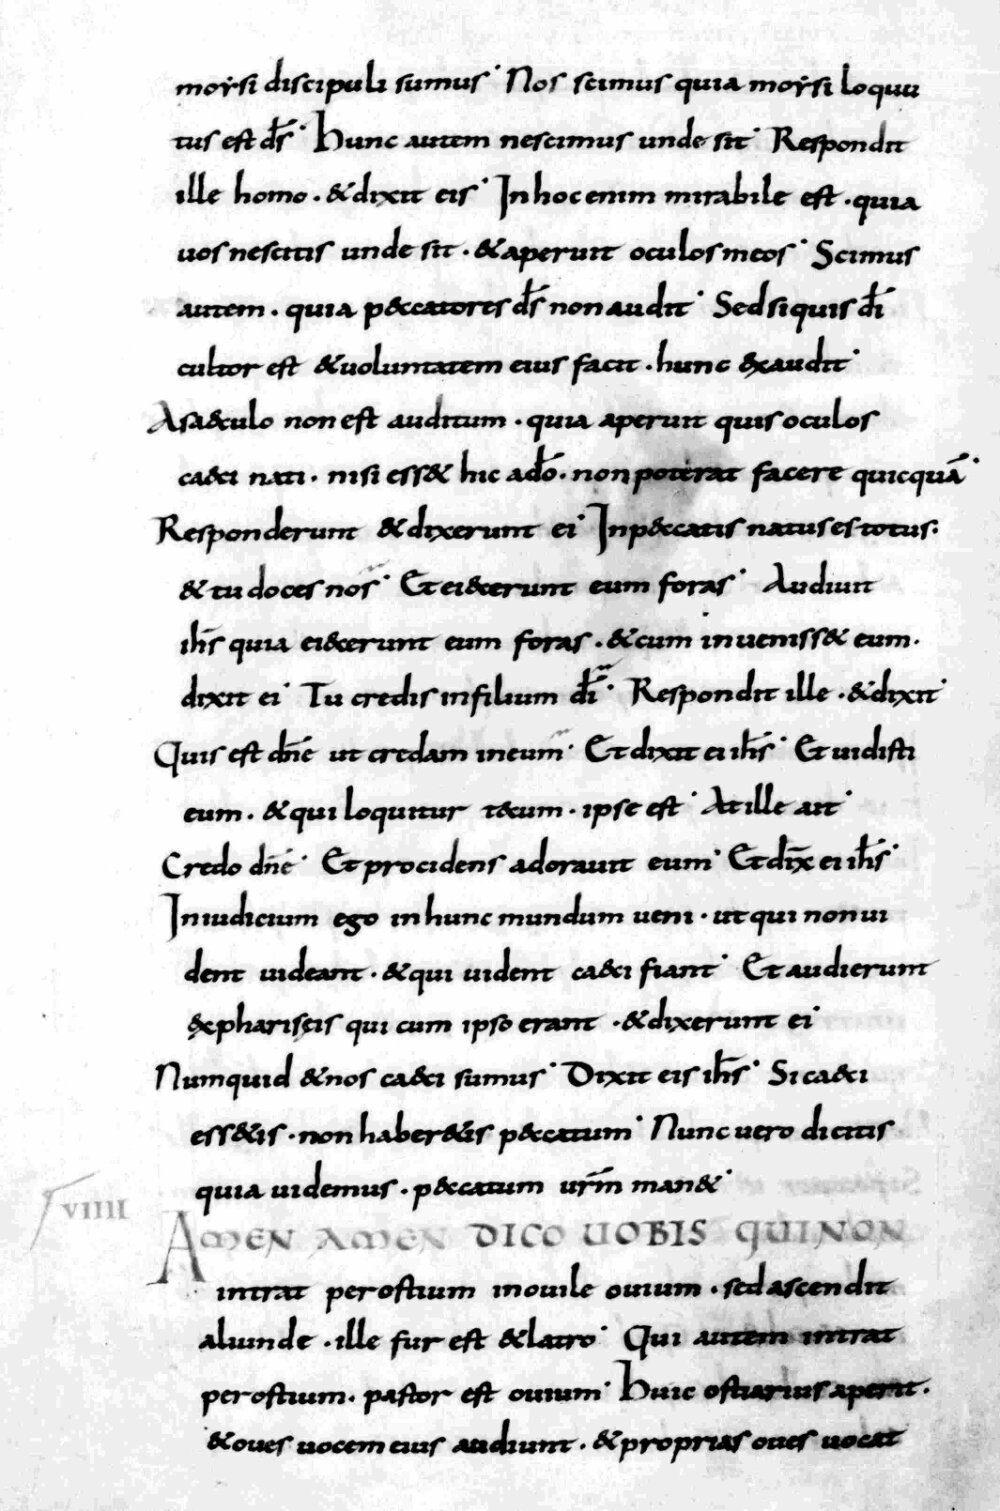 moẏsi discipuli sumus· Nos scimus quia moẏsi loquu
tus est d̅s· Hunc autem nescimus unde sit· Respondit
ille homo · & dixit eis· In hoc enim mirabile est · quia
uos nescitis unde sit · & aperuit oculos meos· Scimus
autem · quia p&ccatores d̅s non audit· Sed si quis d̅i
cultor est & uoluntatem eius facit · hunc &xaudit·
A sa&culo non est auditum · quia aperuit quis oculos
ca&ci nati · nisi ess& hic a d̅o · non poterat facere quicquā·
Responderunt & dixerunt ei· In p&ccatis natus es totus:
& tu doces nos· Et ei&cerunt eum foras· Audiuit
ih̅s quia ei&cerunt eum foras · & cum inueniss& eum ·
dixit ei· Tu credis in filium d̅i· Respondit ille · & dixit·
Quis est dn̅e ut credam in eum· Et dixit ei ih̅s· Et uidisti
eum · & qui loquitur t&cum · ipse est· At ille ait·
Credo dn̅e· Et procidens adorauit eum· Et dix̅ ei ih̅s·
In iudicium ego in hunc mundum ueni · ut qui non ui
dent uideant · & qui uident ca&ci fiant· Et audierunt
&x phariseis qui cum ipso erant · & dixerunt ei·
Numquid & nos ca&ci sumus· Dixit eis ih̅s· Si ca&ci
ess&is · non haber&is p&ccatum· Nunc uero dicitis
quia uidemus · p&ccatum ur̅m man&·
VIIII
AMEN AMEN DICO UOBIS QUI NON
intrat per ostium in ouile ouium · sed ascendit
aliunde · ille fur est & latro· Qui autem intrat
per ostium · pastor est ouium· Huic ostiarius aperit ·
& oues uocem eius audiunt · & proprias oues uocat